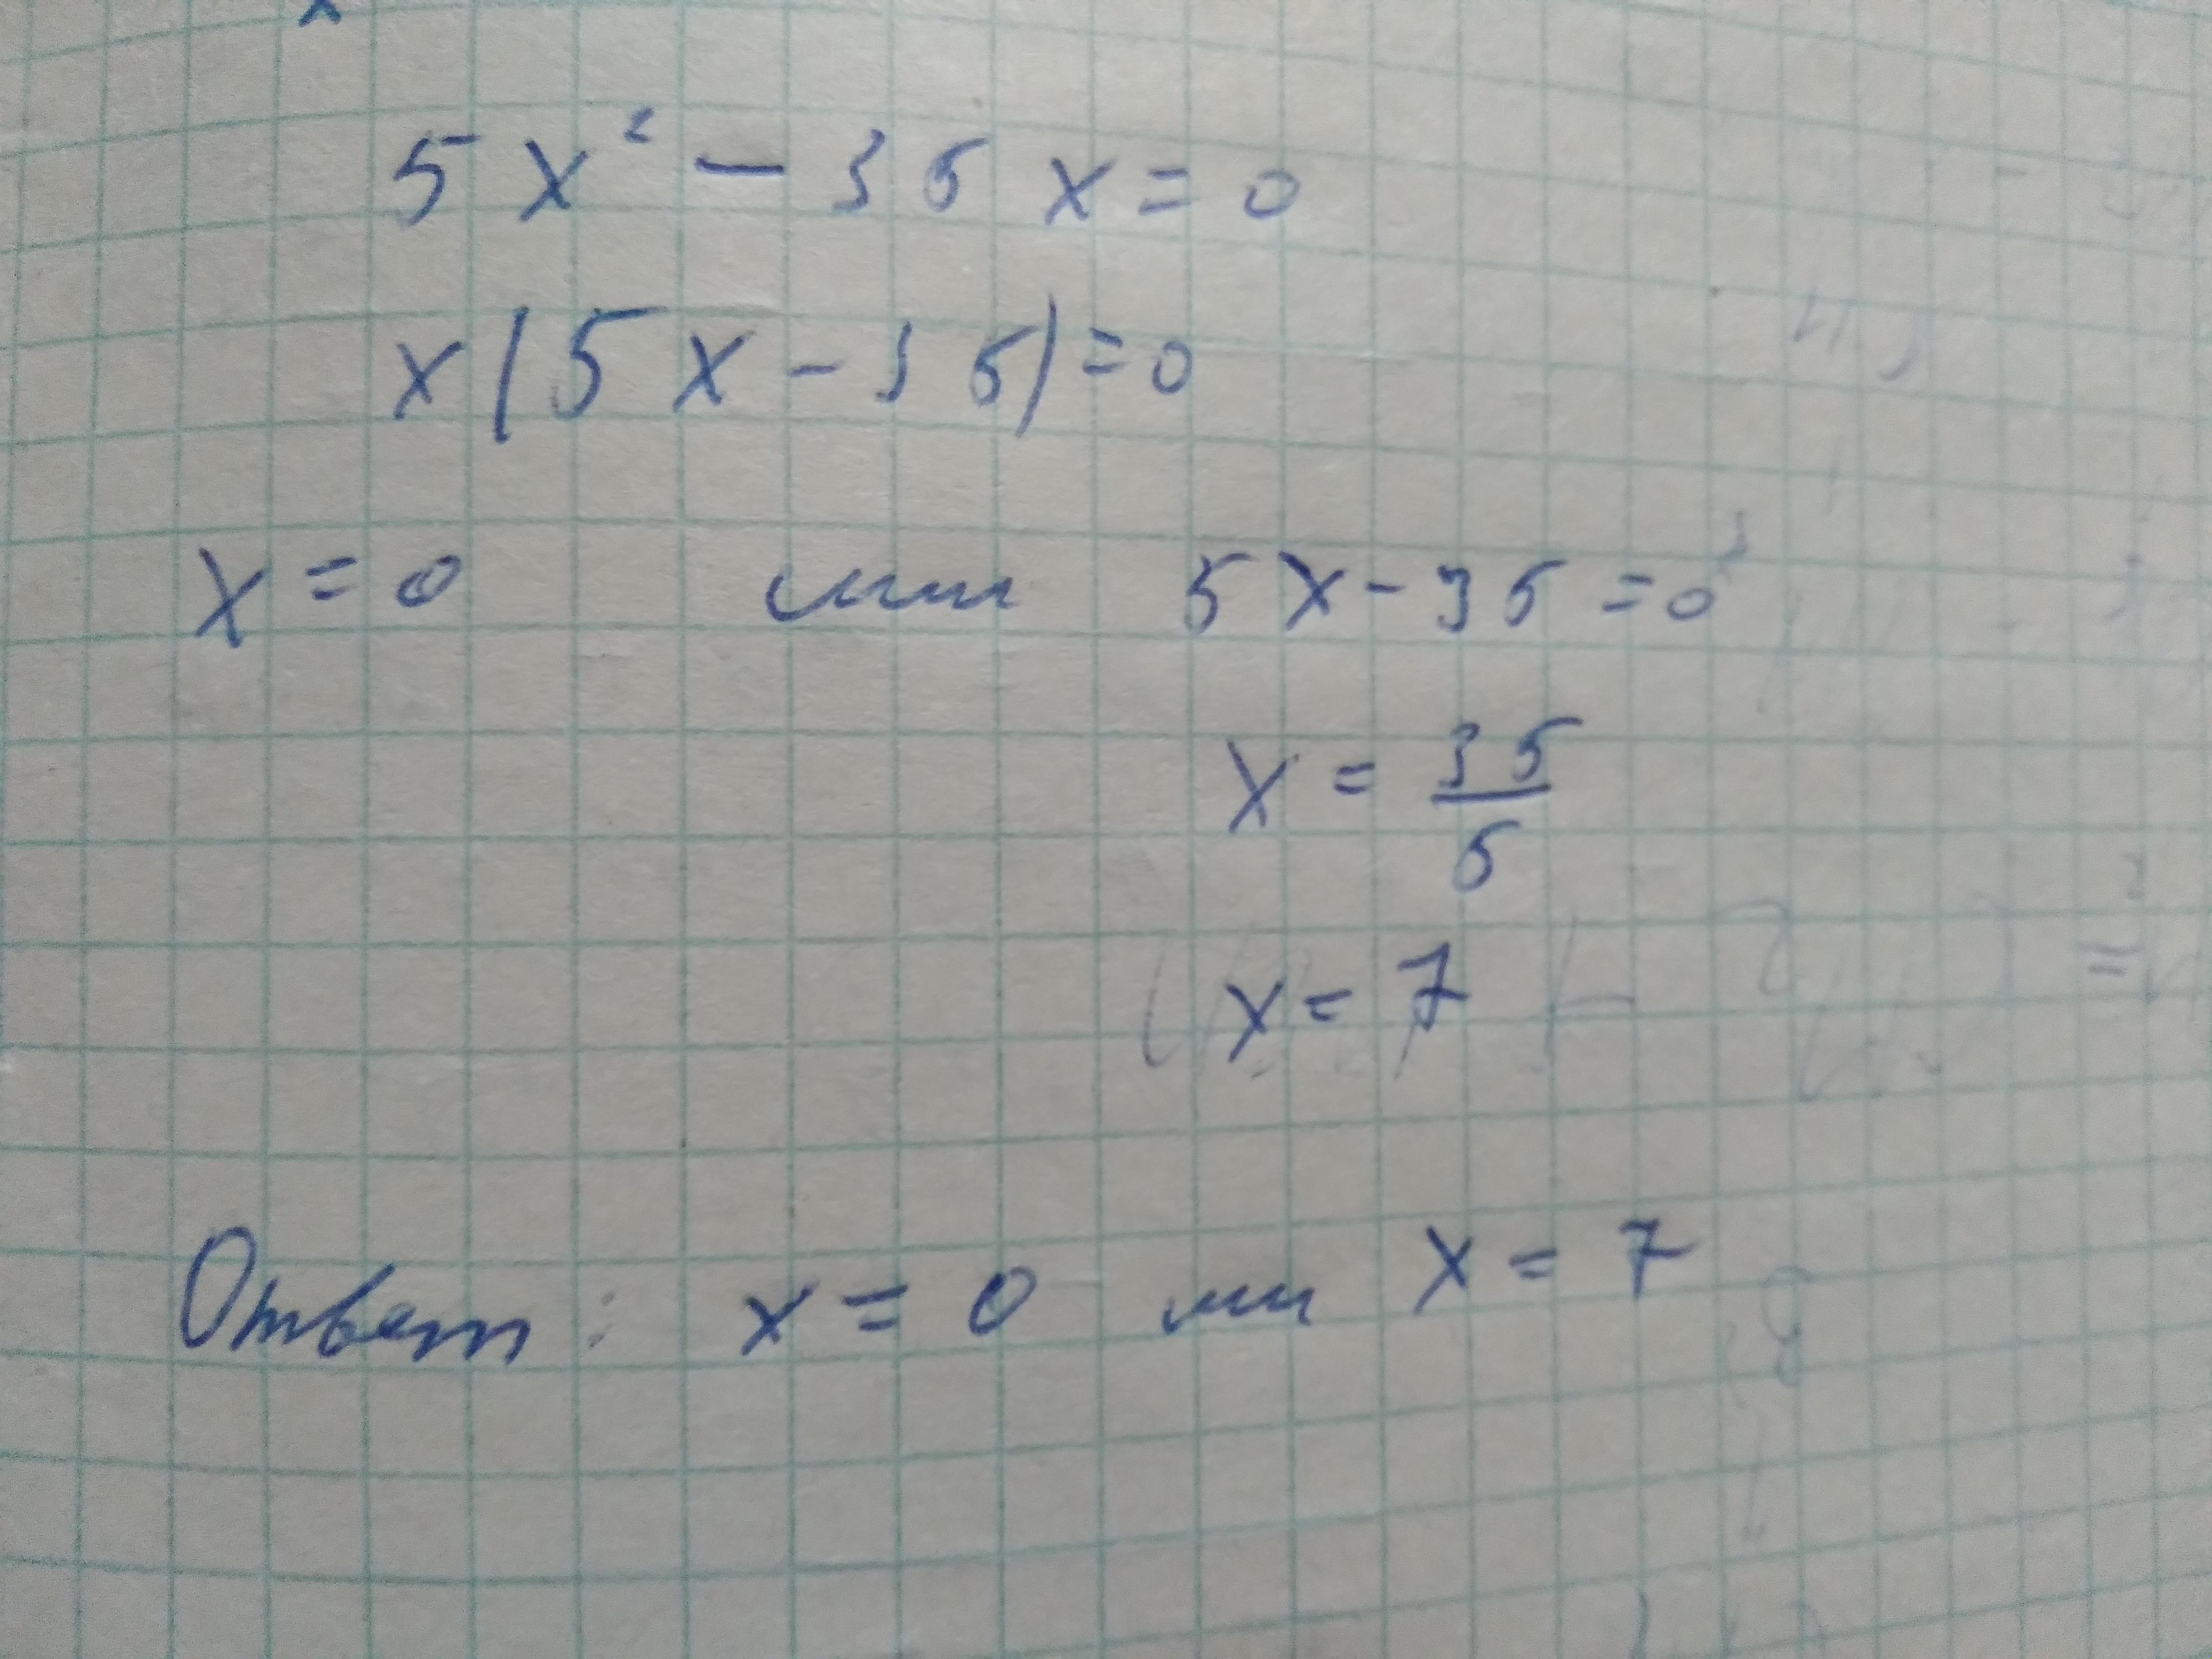 5x² - 35x = 0
x(5x - 35) = 0
x = 0 или 5x - 35 = 0
x = 35/5
x = 7
Ответ: x = 0 или x = 7